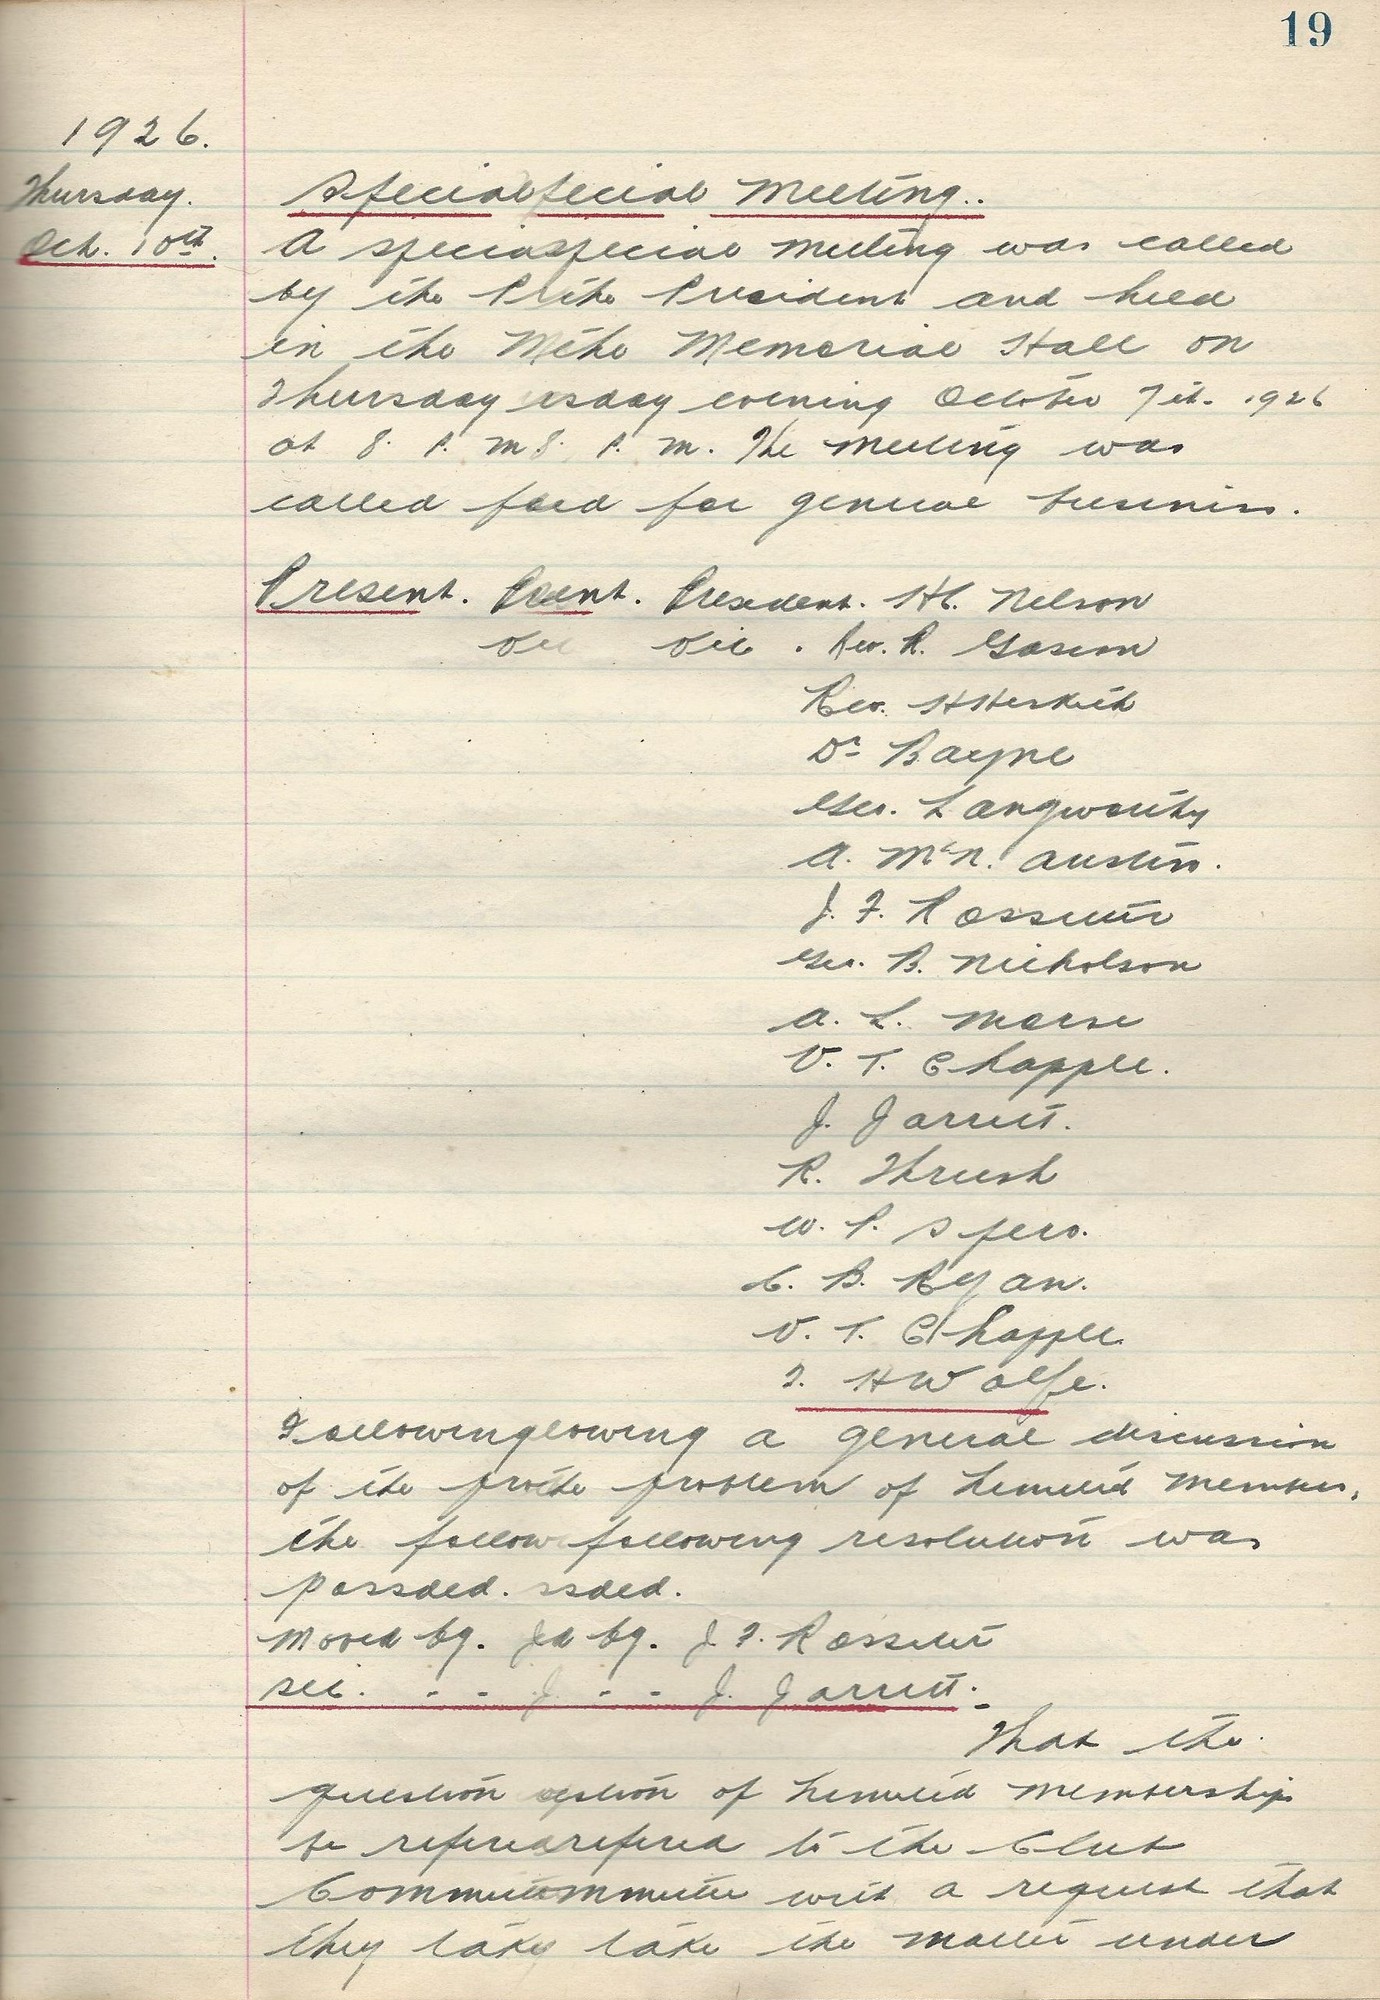 19
1926.
Thursday.
Oct. 10th.
Special special Meeting..
A specia special meeting was called
by the P the President and held
in the M the Memorial Hall on
Thursday ursday evening October 7th. 1926
at 8. P. m 8. P. m. The meeting was
called fo ed for general business.
Present. Present. President. H. Nelson
Vic Vic. Rev. R.
Rev. H Heskith
Dr Bayne
Geo. Langworthy
A. McN. Austin.
J. F. Rossiter
Geo. B. Nicholson
A. L. Morse
V. T. Chapple.
J. Jarrett.
R. Thrush
W. P. Spero.
C. B. Ryan.
V. T. Chapple.
F. H Wolfe.
Following lowing a general discussion
of the pro the problem of Limited Members,
the follow following resolution was
passded. ssded.
Moved by. J d by. J F. Rossiter
sec. - - J - - J. Jarrett.
That the
question estion of Limited Membership
be refered refered to the Club
Committe mmittee with a request that
they take take the matter under